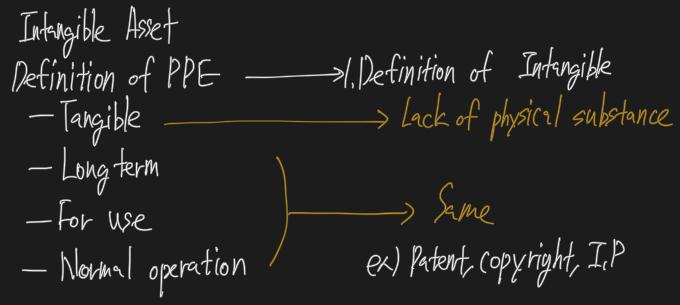 Intangible Asset
Definition of PPE → 1. Definition of Intangible
— Tangible → Lack of physical substance
— Long term
— For use → Same
— Normal operation
ex) Patent, copyright, I.P